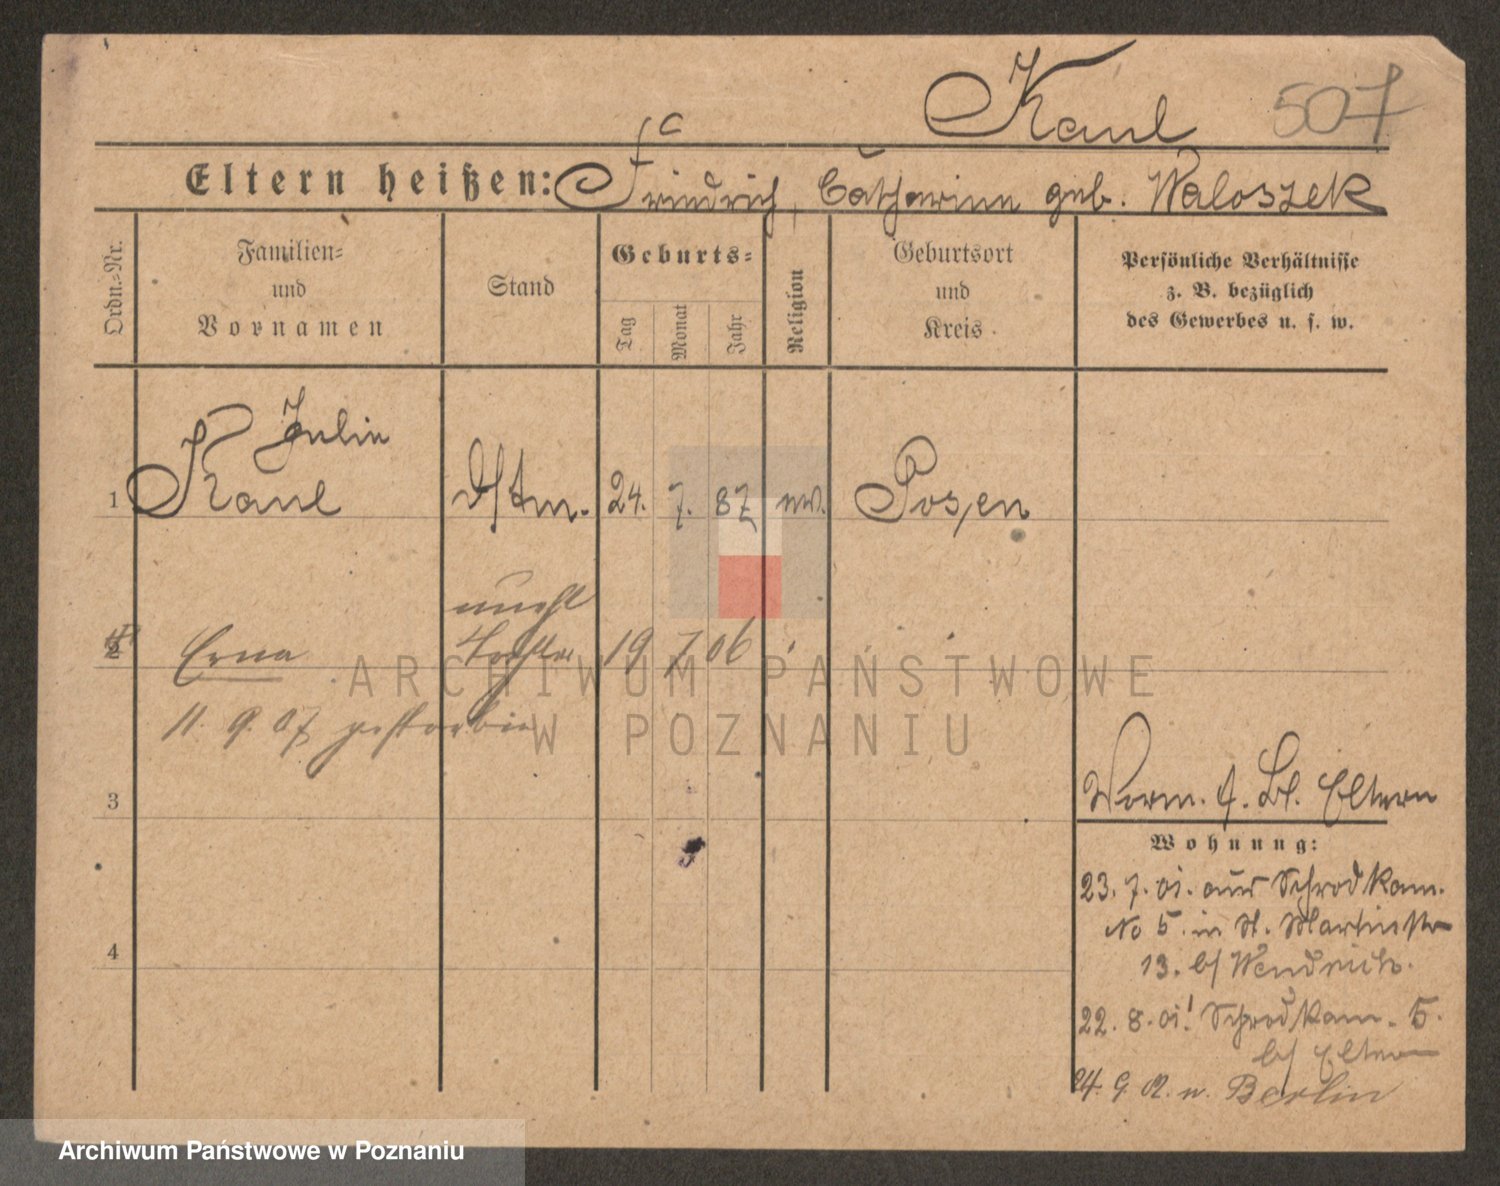 Kaul 507
Eltern heißen: Friedrich, Catharine geb. Waloszek
Ordn.=Nr.
Familien=
und
Vornamen
Stand
Geburts=
Tag
Monat
Jahr
Religion
Geburtsort
und
Kreis
Persönliche Verhältnisse
z. B. bezüglich
des Gewerbes u. s. w.
Julie
1 Kaul Dstm. 24. 7. 87 ew. Posen
unehl
2 Erna Tochter 19 7 06
11. 9. 07 gestorben
3
Vorm. A. Bl. Eltern
Wohnung:
23. 7. 01. aus Schrodkam.
No 5. in St. Martinstr
13. b/ Wendrich.
4
22. 8. 01! Schrodkam. 5.
b/ Eltern
24. 9. 02. n. Berlin
ARCHIWUM PAŃSTWOWE
W POZNANIU
Archiwum Państwowe w Poznaniu